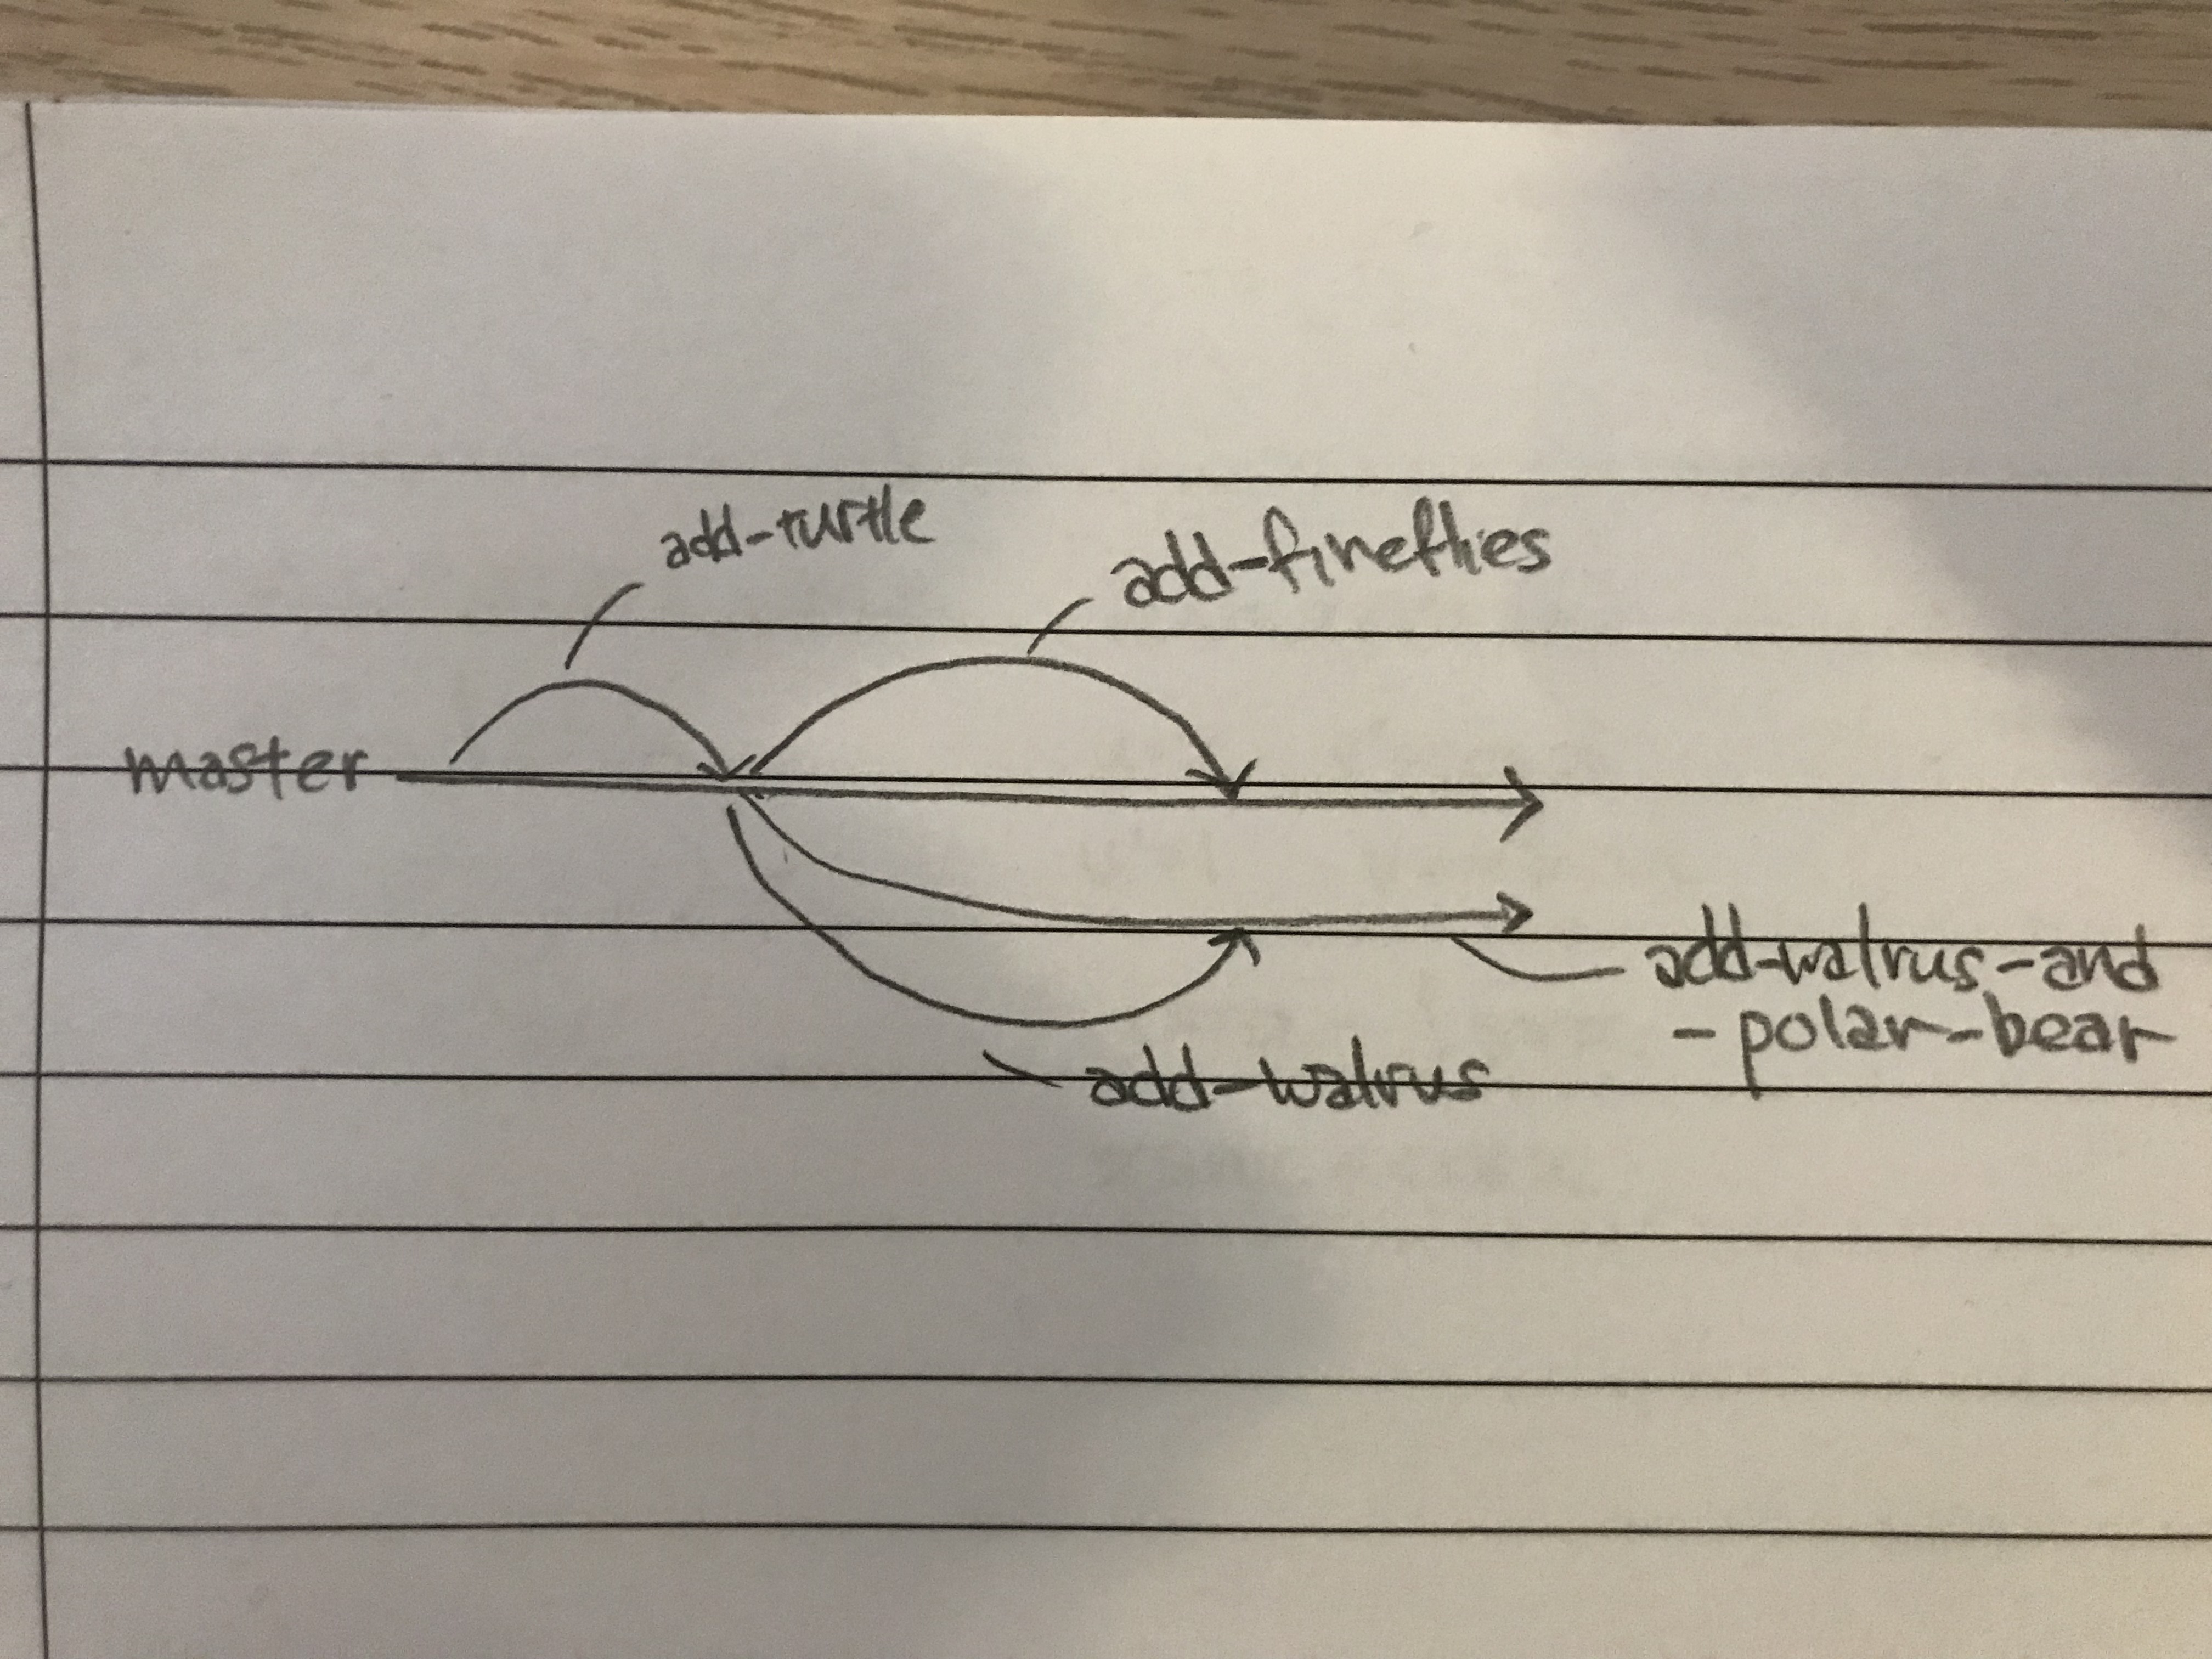 add-turtle
add-fireflies
master
add-walrus-and
-polar-bear
add-walrus